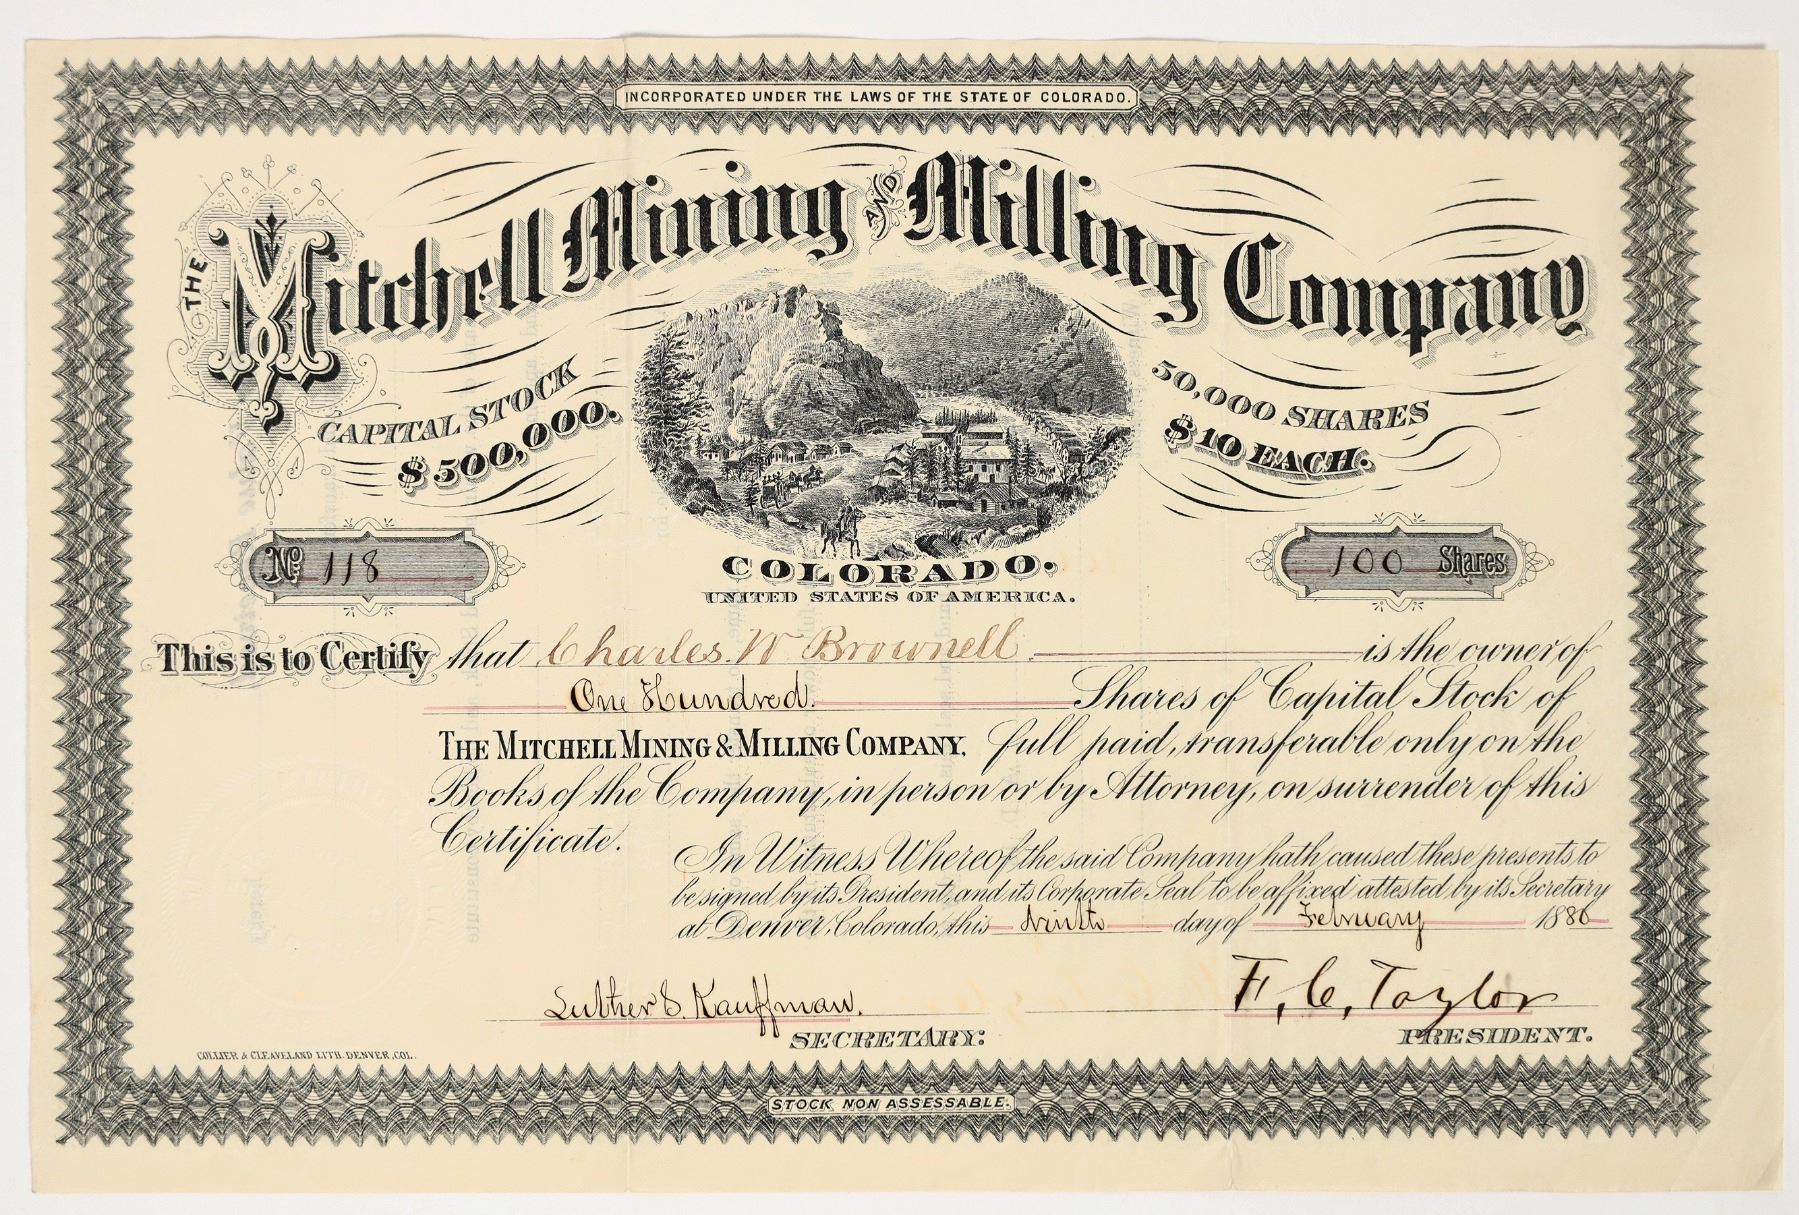 INCORPORATED UNDER THE LAWS OF THE STATE OF COLORADO.
THE Mitchell Mining AND Milling Company
CAPITAL STOCK
$500,000.
50,000 SHARES
$10 EACH.
No. 118
100 Shares
COLORADO.
UNITED STATES OF AMERICA.
This is to Certify that Charles. W Brownell is the owner of
One Hundred. Shares of Capital Stock of
THE MITCHELL MINING & MILLING COMPANY, full paid, transferable only on the
Books of the Company, in person or by Attorney, on surrender of this
Certificate.
In Witness Whereof the said Company hath caused these presents to
be signed by its President, and its Corporate Seal to be affixed attested by its Secretary
at Denver, Colorado, this day of February 1880
Luther S. Kauffman.
SECRETARY:
F. C. Taylor
PRESIDENT.
COLLIER & CLEAVELAND LITH. DENVER, COL.
STOCK NON ASSESSABLE.